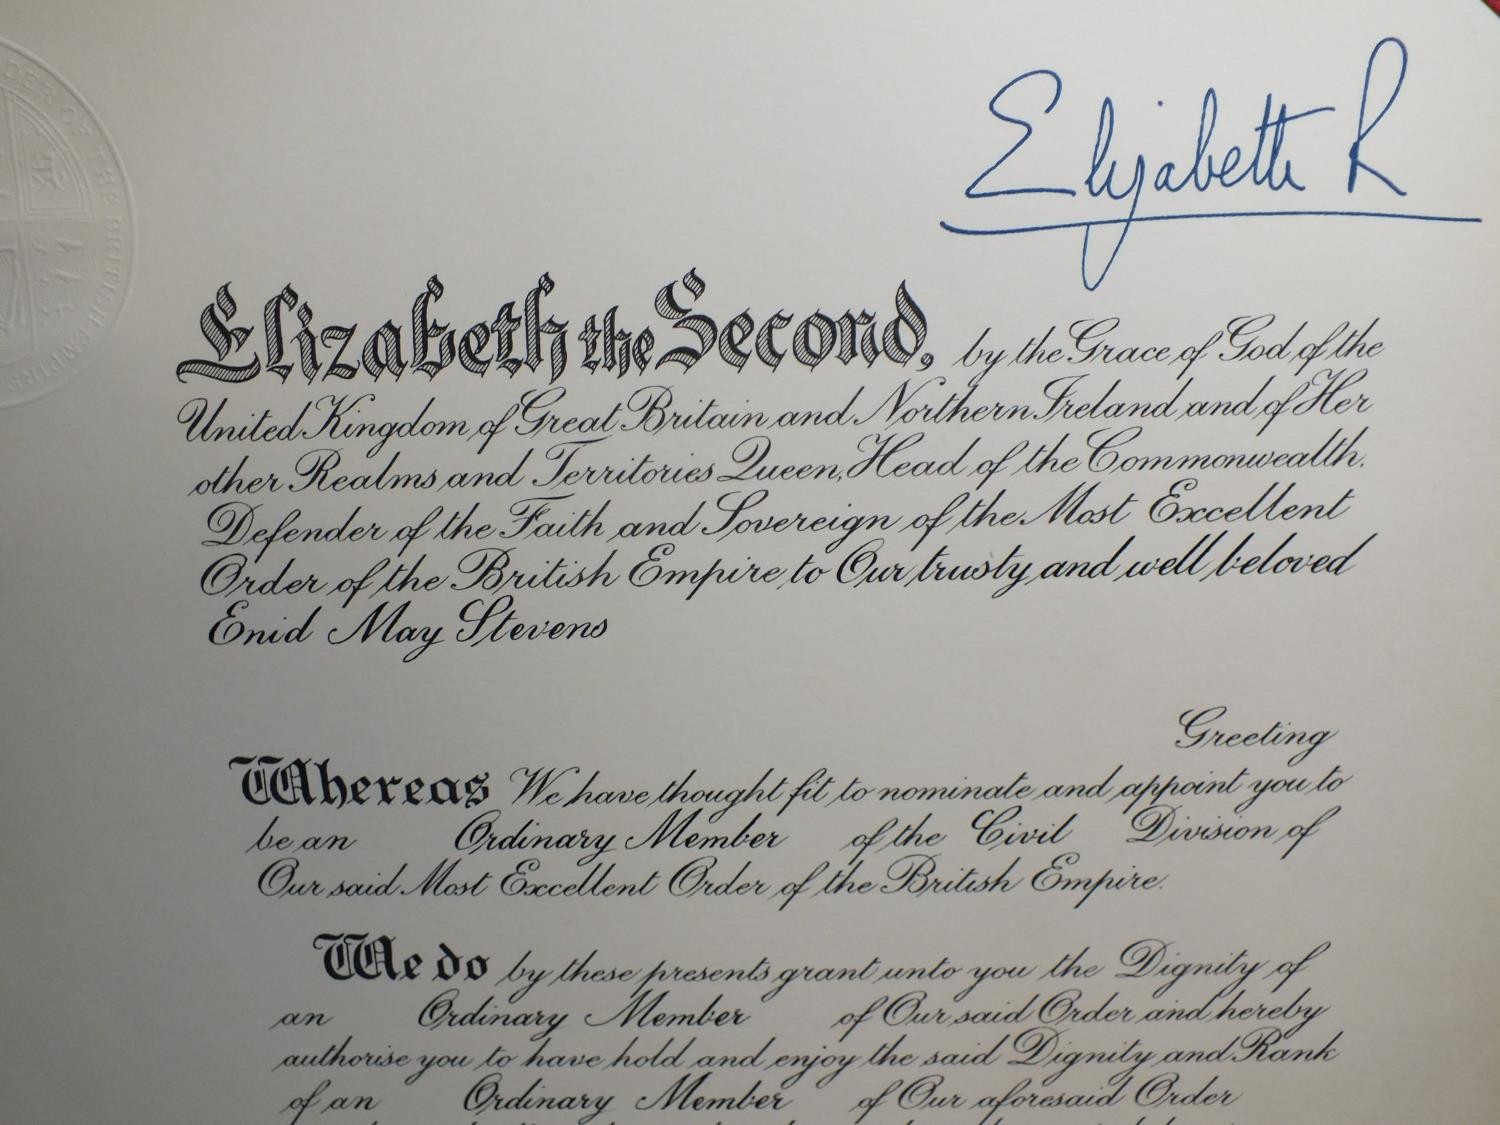 Elizabeth R
ORDER OF THE BRITISH EMPIRE
Elizabeth the Second, by the Grace of God of the
United Kingdom of Great Britain and Northern Ireland and of Her
other Realms and Territories Queen, Head of the Commonwealth,
Defender of the Faith and Sovereign of the Most Excellent
Order of the British Empire to Our trusty and well beloved
Enid May Stevens
Greeting
Whereas We have thought fit to nominate and appoint you to
be an Ordinary Member of the Civil Division of
Our said Most Excellent Order of the British Empire.
We do by these presents grant unto you the Dignity of
an Ordinary Member of Our said Order and hereby
authorise you to have hold and enjoy the said Dignity and Rank
of an Ordinary Member of Our aforesaid Order